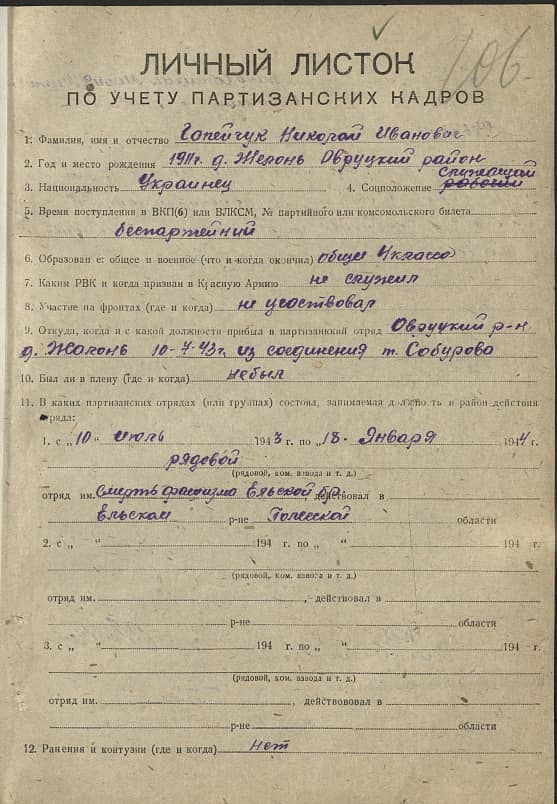 706.
ЛИЧНЫЙ ЛИСТОК
ПО УЧЕТУ ПАРТИЗАНСКИХ КАДРОВ
1. Фамилия, имя и отчество Гапейчук Николай Иванович
2. Год и место рождения 1911г. д. Желонь Овруцкий район
служащий
3. Национальность Украинец 4. Соцположение рабочий
5. Время поступления в ВКП(б) или ВЛКСМ, № партийного или комсомольского билета
беспартейний
6. Образован е: общее и военное (что и когда окончил) общее 4 класса
7. Каким РВК и когда призван в Красную Армию не служил
8. Участие на фронтах (где и когда) не участвовал
9. Откуда, когда и с какой должности прибыл в партизанкий отряд Овруцкий р-н
д. Жолонь 10-7-43г. из соединения т. Сабурова
10. Был ли в плену (где и когда) небыл
11. В каких партизанских отрядах (или группах) состоял, занимаемая должность и район действия
отряда:
1. с „ 10 “ июль 1943 г. по „ 18 “ Января 1944 г.
рядовой
(рядовой, ком. взвода и т. д.)
отряд им. Смерть фашизма Ельской бр. действовал в
Ельском р-не Полесской области
2. с „ “ 194 г. по „ “ 194 г.
(рядовой, ком. взвога и т. д.)
отряд им. , действовал в
р-не области
3. с „ “ 194 г. по „ “ 194 г.
(рядовой, ком. взвода и т. д.)
отряд им. , действововал в
р-не области
12. Ранения и контузии (где и когда) нет